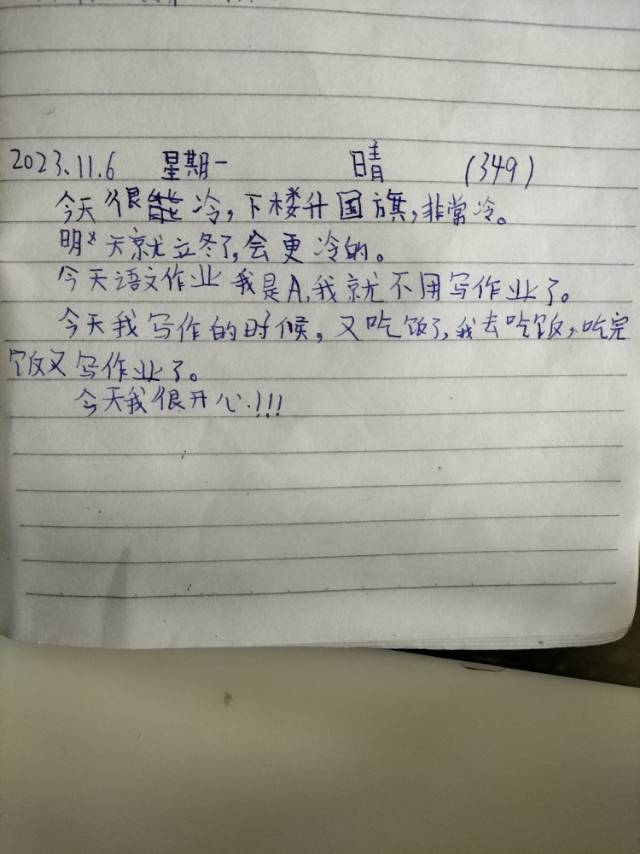 2023.11.6 星期一 晴 (349)
今天很冷,下楼升国旗,非常冷。
明天就立冬了,会更冷的。
今天语文作业我是A,我就不用写作业了。
今天我写作的时候,又吃饭了,我去吃饭,吃完
饭又写作业了。
今天我很开心!!!